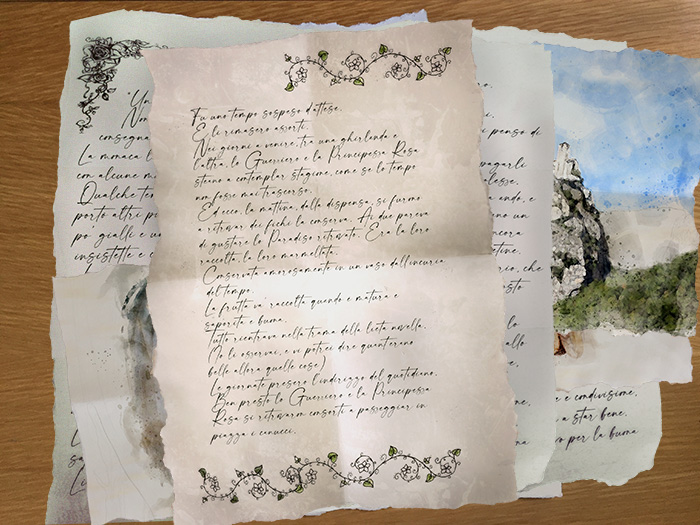 "Un
Non
consegna
La monaca l
con alcune m
Qualche ten
portò altri pi
po' gialli e
insistette e c
Fu uno tempo sospeso d'attese.
E lì rimasero assorti.
Nei giorni a venire, tra una ghirlanda e
l'altra, lo Guerriero e la Principessa Rosa
stenno a contemplar stagione, come se lo tempo
non fosse mai trascorso.
Ed ecco, la mattina, dalla dispensa, si furono
a ritrovar dei fichi la conserva. Ai due pareva
di gustare lo Paradiso ritrovato. Era la loro
raccolta, la loro marmellata.
Conservata amorosamente in un vaso dall'incuria
del tempo.
La frutta va' raccolta quando è matura e
saporita e buona.
Tutto rientrava nella trama della lieta novella.
(Io li osservai, e vi potrei dire quant'erano
belle allora quelle cose)
Le giornate presero l'indirizzo del quotidiano.
Ben presto lo Guerriero e la Principessa
Rosa si ritrovarono consorti a passeggiar in
piazza i canucci.
i penso di
pagarli
ando, e
ono un
ancora
rio, che
lo
allo
e condivisione.
a star bene.
per la buona